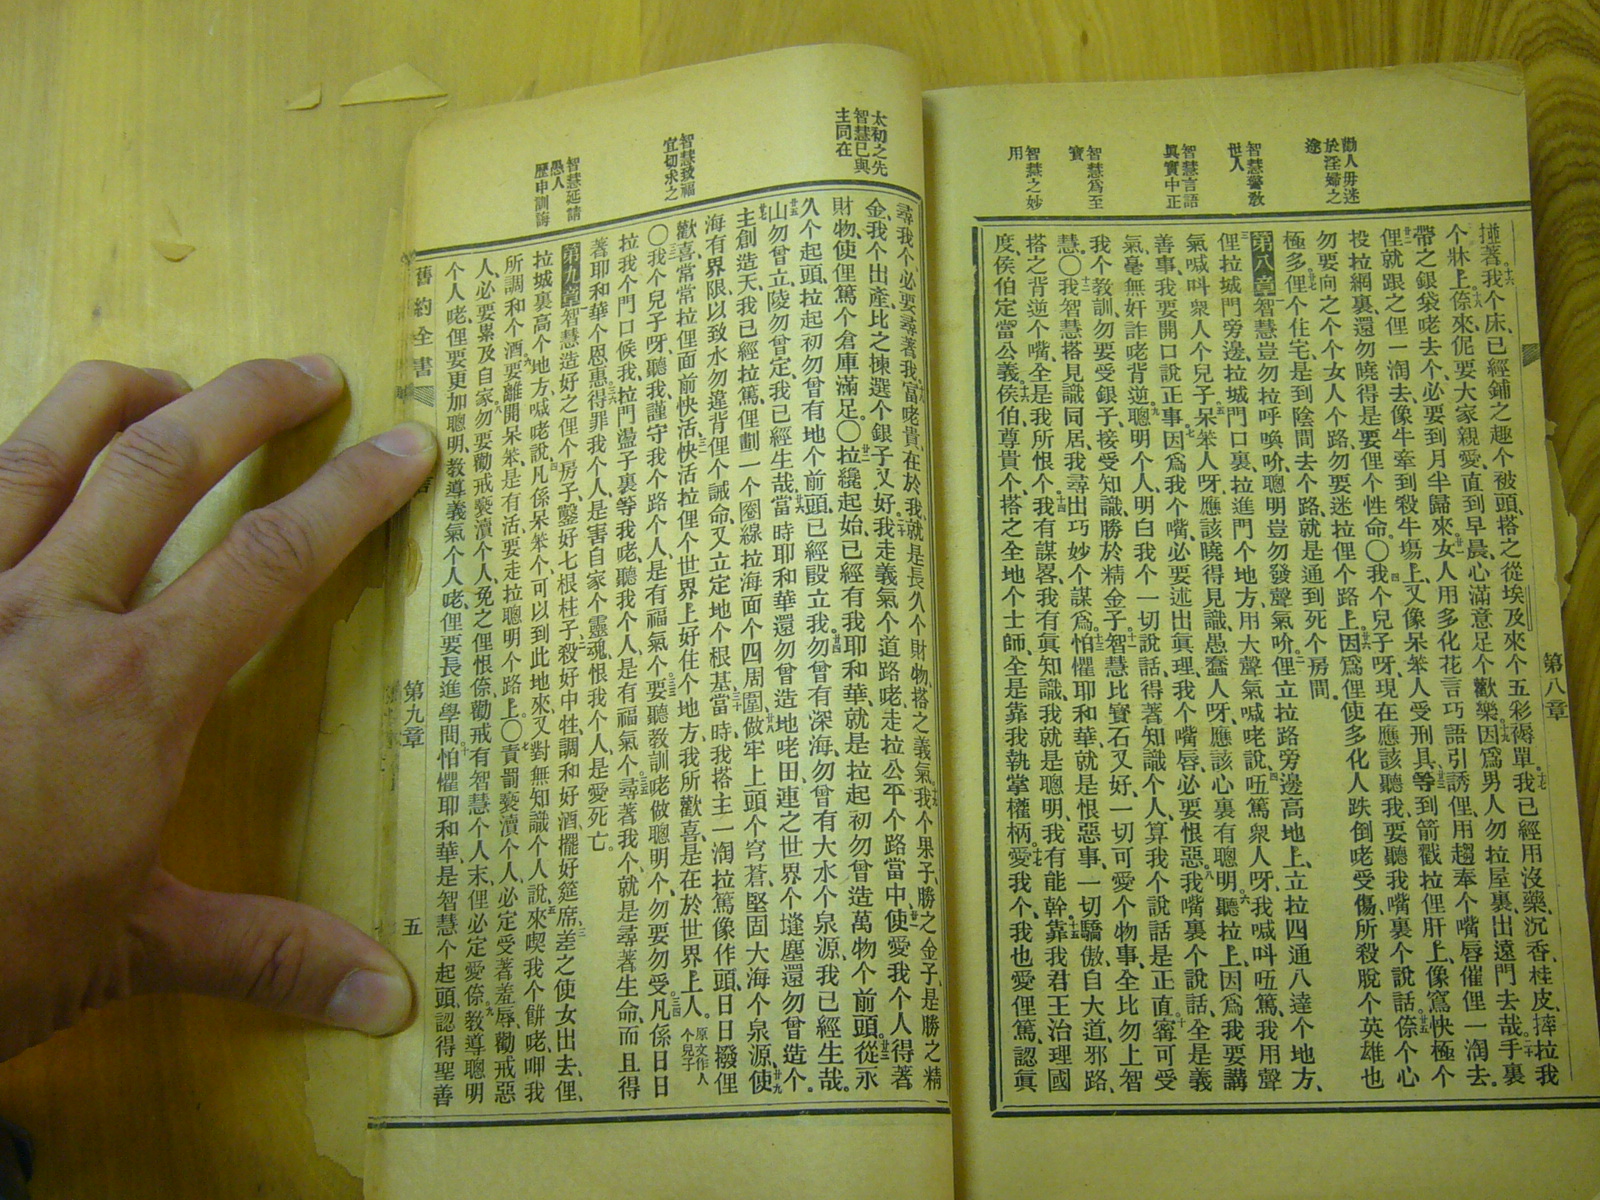 勸人毋迷
於淫婦之
途
智慧警敎
世人
智慧言語
眞實中正
智慧爲至
寶
智慧之妙
用
第八章
搓著我个床、已經鋪之趣个被頭、搭之從埃及來个五彩褥單。我已經用沒藥、沉香、桂皮、摔拉我
个牀上。倷來、伲要大家親愛、直到早晨、心滿意足个歡樂。因爲男人勿拉屋裏、出遠門去哉。手裏
帶之銀袋咾去个、必要到月半歸來。女人用多化花言巧語引誘俚、用趨奉个嘴唇催俚。一淘去。
俚就跟之俚一淘去、像牛牽到殺牛塲上、又像呆笨人受刑具。等到箭戳拉俚肝上、像窵快極个
投拉網裏、還勿曉得是要俚个性命。〇我个兒子呀、現在應該聽我、要聽我嘴裏个說話。倷个心
勿要向之个个女人个路、勿要迷拉俚个路上。因爲俚使多化人跌倒咾受傷、所殺脫个英雄也
極多。俚个住宅、是到陰間去个路、就是通到死个房間。
第八章 智慧豈勿拉呼喚吤、聰明豈勿發聲氣吤。俚立拉路旁邊高地上、立拉四通八達个地方、
俚拉城門旁邊、拉城門口裏、拉進門个地方、用大聲氣喊咾說、㕶篤衆人呀、我喊叫㕶篤、我用聲
氣喊叫衆人个兒子。呆笨人呀、應該曉得見識、愚蠢人呀、應該心裏有聰明。聽拉、因爲我要講
善事、我要開口說正事。因爲我个嘴、必要述出眞理、我个嘴唇、必要恨惡。我嘴裏个說話、全是義
氣、毫無奸詐咾背逆。聰明个人明白我个一切說話、得著知識个人、算我个說話是正直。寗可受
我个教訓、勿要受銀子、接受知識、勝於精金子。智慧比寶石又好、一切可愛个物事、全比勿上智
慧。〇我智慧搭見識同居、我尋出巧妙个謀爲。怕懼耶和華、就是恨惡事、一切驕傲自大、道邪路、
搭之背逆个嘴、全是我所恨个。我有謀畧、我有眞知識、我就是聰明、我有能幹。靠我君王治理國
度、侯伯定當公義。侯伯尊貴个、搭之全地个士師、全是靠我執掌權柄。愛我个、我也愛俚篤、認眞
太初之先
智慧已與
主同在
智慧致福
宜切求之
智慧延請
愚人
歷申訓誨
尋我个、必要尋著我。富咾貴、在於我、就是長久个財物、搭之義氣。我个果子、勝之金子、是勝之精
金、我个出產、比之揀選个銀子又好。我走義氣个道路咾、走拉公平个路當中。使愛我个人得著
財物、使俚篤个倉庫滿足。〇拉纔起始、已經有我、耶和華就是拉起初勿曾造萬物个前頭。從永
久个起頭、拉起初勿曾有地个前頭、已經設立我。勿曾有深海、勿曾有大水个泉源、我已經生哉。
山勿曾立、陵勿曾定、我已經生哉。當時耶和華還勿曾造地咾田、連之世界个塳塵還勿曾造个。
主創造天、我已經拉篤、俚劃一个圈線拉海面个四周圍、做牢上頭个穹蒼、堅固大海个泉源、使
海有界限、以致水勿違背俚个誡命、又立定地个根基。當時我搭主一淘拉篤、像作頭、日日撥俚
歡喜、常常拉俚面前快活、快活拉俚个世界上好住个地方、我所歡喜、是在於世界上人。原文作人个兒子
〇我个兒子呀、聽我、謹守我个路个人、是有福氣个。要聽教訓咾做聰明个、勿要勿受。凡係日日
拉我个門口候我、拉門盪子裏等我咾、聽我个人、是有福氣个。尋著我个、就是尋著生命、而且得
著耶和華个恩惠。得罪我个人、是害自家个靈魂、恨我个人、是愛死亡。
第九章 智慧造好之俚个房子、鑿好七根柱子、殺好中牲、調和好酒、擺好筵席。差之使女出去、俚
拉城裏高个地方、喊咾說、凡係呆笨个、可以到此地來、又對無知識个人說、來喫我个餅咾呷我
所調和个酒。要離開呆笨、是有活、要走拉聰明个路上。〇責罰褻瀆个人、必定受著羞辱、勸戒惡
人、必要累及自家。勿要勸戒褻瀆个人、免之俚恨倷、勸戒有智慧个人末、俚必定愛倷。教導聰明
个人咾、俚要更加聰明、敎導義氣个人咾、俚要長進學問。怕懼耶和華、是智慧个起頭、認得聖善
舊約全書
第九章
五